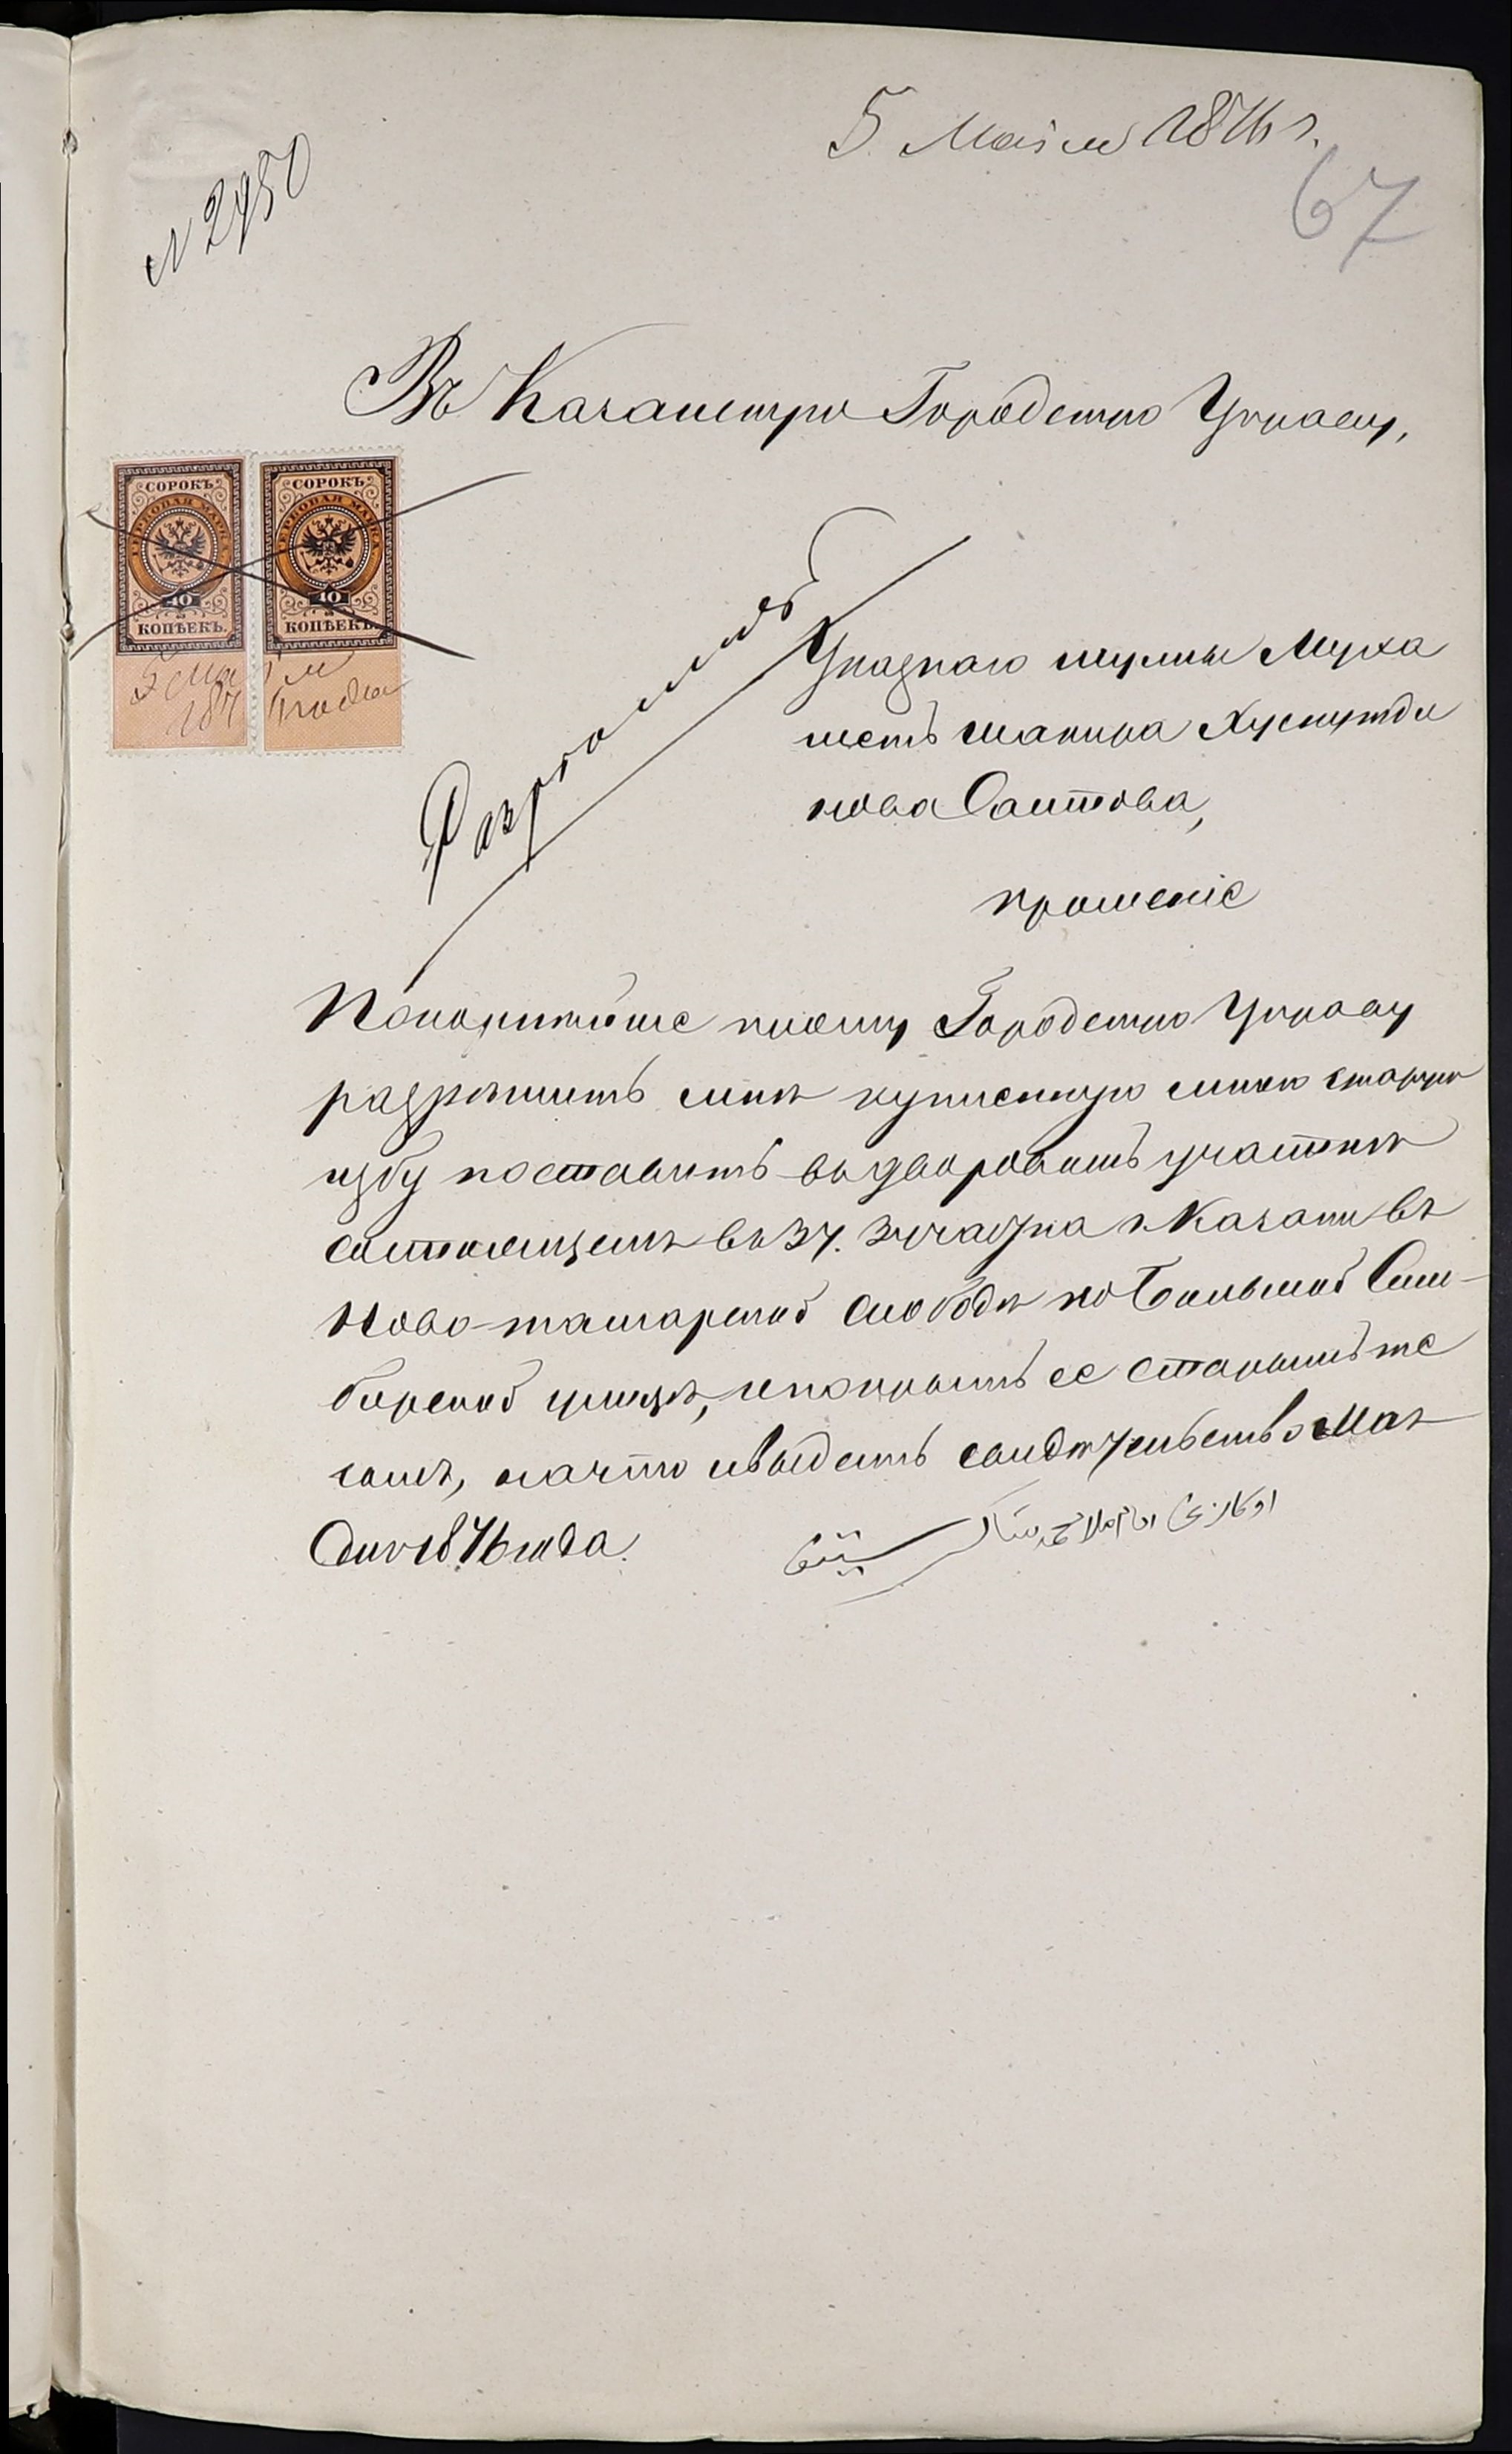 5 Мая 1876 г.
67
N 2950
Въ Казанскую Городскую Управу,
СОРОКЪ
ГЕРБОВАЯ МАРКА
40
КОПѢЕКЪ.
СОРОКЪ
ГЕРБОВАЯ МАРКА
40
КОПѢЕКЪ.
5 мая
187 года
Разрѣшить
Указнаго муллы Муха
метъ Шакира Хуснутди
нова Саитова,
прошеніе
Покорнѣйше прошу Городскую Управу
разрѣшить мнѣ купленную мною старую
избу поставить въ дворовомъ участкѣ
состоящемъ въ 3 ч. г. Казани въ
Ново-татарской слободѣ по Большой Сим-
бирской улицѣ, и покрыть ее старымъ те
сомъ, на что и выдать свидѣтельство Мая
Дня 1876 года.